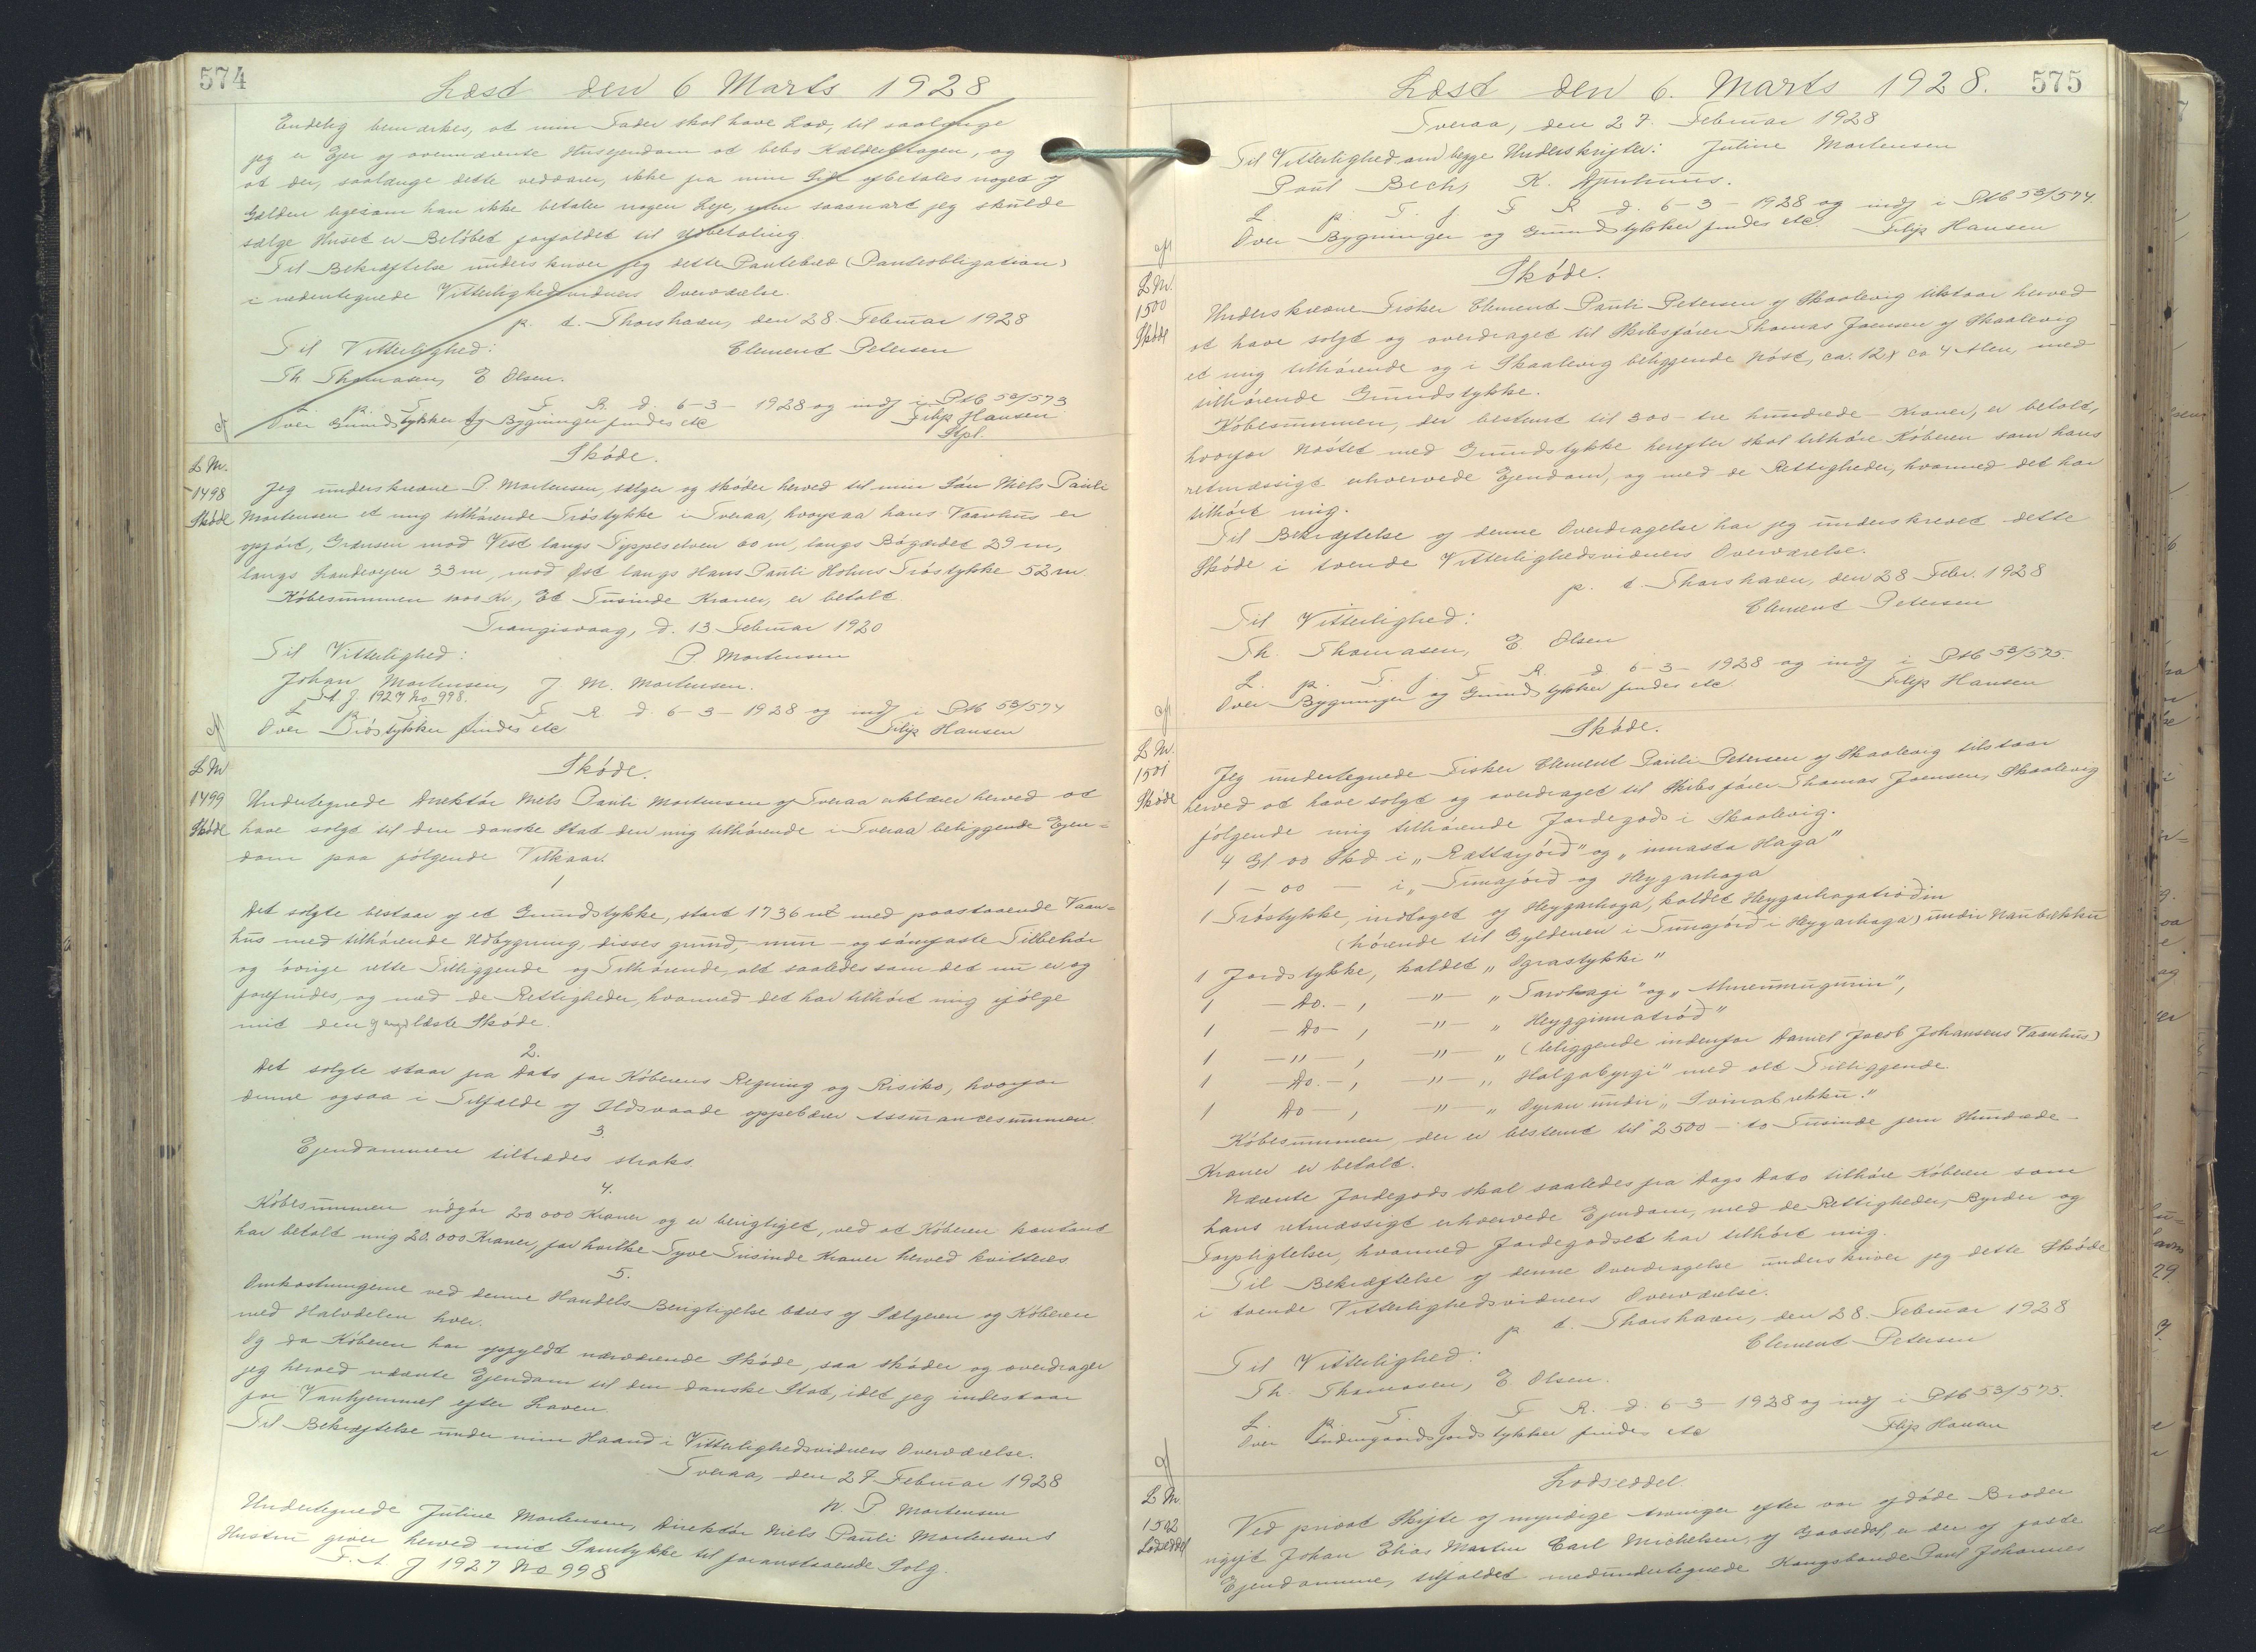 574
Læst den 6 Marts 1928
Endelig bemærkes, at min Fader skal have Lov, til saalænge
jeg er Ejer af ovennævnte Husejendom at bebo Kælderetagen, og
at der, saalænge dette vedvarer, ikke fra min Side afbetales noget af
Gælden ligesom han ikke betaler nogen Leje, men saasnart jeg skulde
sælge Huset er Beløbet forfaldet til Udbetaling
Til Bekræftelse underskriver jeg dette Pantebrev (Panteobligation)
i nedentegnede Vitterlighedsvidners Overværelse.
p. t. Thorshavn, den 28. Februar 1928
Til Vitterlighed: Clement Petersen
Th Thomasen, E Olsen.
L. p. T. f. F. R. d. 6-3-1928 og indf i Ptb 53/573
Over Grundstykker og Bygninger findes etc Filip Hansen
Stpl.
L M.
1498
Skøde
Skøde.
Jeg underskrevne P. Mortensen, sælger og skøder herved til min Søn Niels Pauli
Mortensen et mig tilhørende Trøstykke i Tveraa, hvorpaa hans Vaanhus er
opført, Grænsen mod Vest langs Typpeselven 60 m, langs Bøgærdet 29 m,
langs Landevejen 33 m, mod Øst langs Hans Pauli Holms Trøstykke 52 m.
Købesummen 1000 Kr., Et Tusinde Kroner, er betalt.
Trangisvaag, d. 13 Februar 1920
Til Vitterlighed: P Mortensen
Johan Mortensen, J. M. Mortensen.
F A J. 1927 No 998.
L p T f F R d. 6-3-1928 og indf i Ptb 53/574
Over Trøstykker findes etc Filip Hansen
L M
1499
Skøde
Skøde.
Undertegnede Direktør Niels Pauli Mortensen af Tveraa erklærer herved at
have solgt til den danske Stat den mig tilhørende i Tveraa beliggende Ejen=
dom paa følgende Vilkaar.
1
Det solgte bestaar af et Grundstykke, stort 1736 m2 med paastaaende Vaan=
hus med tilhørende Udbygning, disses grund, mur- og sømfaste Tilbehør
og øvrige rette Tilliggende og Tilhørende, alt saaledes som det nu er og
forefindes, og med de Rettigheder, hvormed det har tilhørt mig ifølge
mit den læste Skøde.
2.
Det solgte staar fra Dato for Køberens Regning og Risiko, hvorfor
denne ogsaa i Tilfælde af Ildsvaade oppebærer Assurancesummen
3.
Ejendommen tiltrædes straks.
4.
Købesummen udgør 20 000 Kroner og er berigtiget, ved at Køberen kontant
har betalt mig 20.000 Kroner, for hvilke Tyve Tusinde Kroner herved kvitteres
5.
Omkostningerne ved denne Handels Berigtigelse bæres af Sælgeren og Køberen
med Halvdelen hver.
Og da Køberen har opfyldt nærværende Skøde, saa skøder og overdrager
jeg herved nævnte Ejendom til den danske Stat, idet jeg indestaar
for Vanhjemmel efter Loven.
Til Bekræftelse under min Haand i Vitterlighedsvidners Overværelse.
Tveraa, den 27 Februar 1928
N. P. Mortensen
Undertegnede Jutine Mortensen, Direktør Niels Pauli Mortensens
Hustru giver herved mit Samtykke til foranstaaende Salg.
F. A J 1927 No 998
Læst den 6. Marts 1928. 575
Tveraa, den 27. Februar 1928
Til Vitterlighed om begge Underskrifter: Jutine Mortensen
Poul Bech, K.
L. p. T. f. F R d. 6-3-1928 og indf i Ptb 53/574.
Over Bygninger og Grundstykker findes etc. Filip Hansen
L M.
1500
Skøde
Skøde.
Underskrevne Fisker Clement Pauli Petersen af Skaalevig tilstaar herved
at have solgt og overdraget til Skibsfører Thomas Joensen af Skaalevig
et mig tilhørende og i Skaalevig beliggende Nøst, ca. 12 x ca 4 Alen, med
tilhørende Grundstykke.
Købesummen, der bestemt til 300 - tre hundrede - Kroner, er betalt,
hvorfor Nøstet med Grundstykke herefter skal tilhøre Køberen som hans
retmæssigt erhvervede Ejendom, og med de Rettigheder, hvormed det har
tilhørt mig.
Til Bekræftelse af denne Overdragelse har jeg underskrevet dette
Skøde i tvende Vitterlighedsvidners Overværelse.
p. t. Thorshavn, den 28 Febr. 1928
Til Vitterlighed: Clement Petersen
Th. Thomasen, E Olsen
L. p. T. f. F R. d 6-3-1928 og indf i Ptb 53/575.
Over Bygninger og Grundstykker findes etc Filip Hansen
L M.
1501
Skøde
Skøde.
Jeg undertegnede Fisker Clement Pauli Petersen af Skaalevig tilstaar
herved at have solgt og overdraget til Skibsfører Thomas Joensen, Skaalevig
følgende mig tilhørende Jordegods i Skaalevig.
4 Gl 00 Skd i „Rættarjørð" og „innasta Haga"
1 - 00 - i „Tunajørð og Heygarhaga
1 Trøstykke, indtaget af Heygarhaga, kaldet Heygarhagatrøðin
(hørende til Gyldenen i Tunajørð i Heygarhaga) undir Neubrekku
1 Jordstykke, kaldet „Ograstykki"
1 - Do. - , -"- „ og
1 - Do - , -"- „Heygginnatrøð"
1 -"- , -"- „ (beliggende indenfor Daniel Jacob Johansens Vaanhus)
1 - Do. - , -"- „Halgabyrgi" med alt Tilliggende.
1 Do - , -"- „Oyran under „Svinabrekku."
Købesummen, der er bestemt til 2500 - to Tusinde fem Hundrede -
Kroner er betalt.
Nævnte Jordegods skal saaledes fra Dags Dato tilhøre Køberen som
hans retmæssigt erhvervede Ejendom, med de Rettigheder, Byrder og
Forpligtelser, hvormed Jordegodset har tilhørt mig.
Til Bekræftelse af denne Overdragelse underskriver jeg dette Skøde
i tvende Vitterlighedsvidners Overværelse.
p t. Thorshavn, den 28. Februar 1928
Til Vitterlighed: Clement Petersen
Th. Thomasen, E. Olsen.
L. p. T. f. F R. d. 6-3-1928 og indf i Ptb 53/575.
Over Indengaardsjordstykker findes etc Filip Hansen
L M.
1502
Lodseddel
Lodseddel.
Ved privat Skifte af myndige Arvinger efter vor afdøde Broder
ugift Johan Elias Martin Carl Michelsen, af Gaasedal, er der af faste
Ejendomme, tilfaldet medundertegnede Kongsbonde Poul Johannes